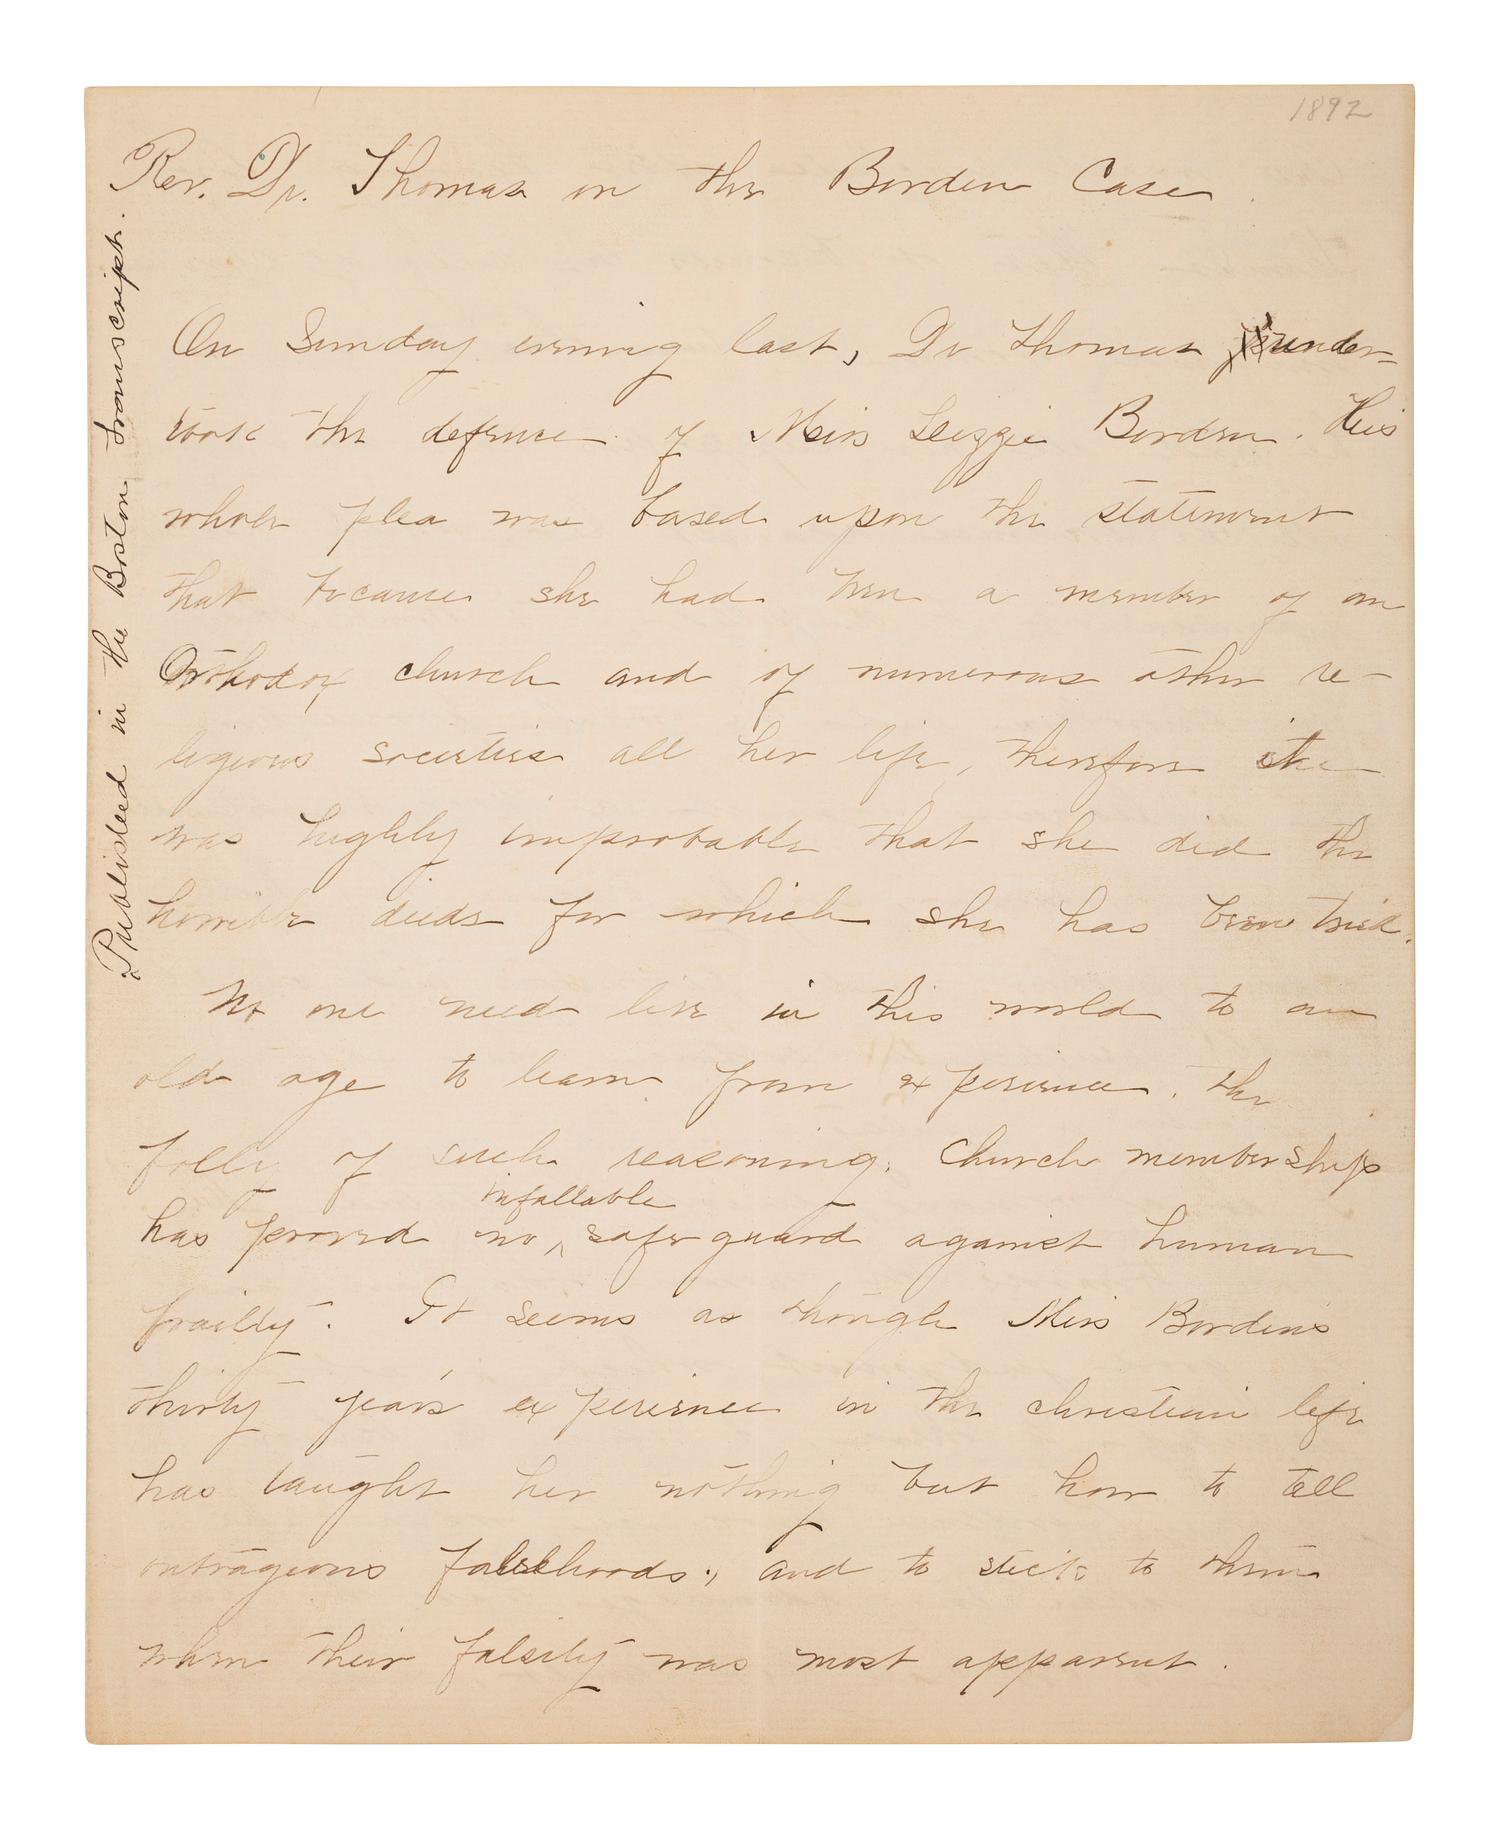 1892
Rev. Dr. Thomas on the Borden Case.
On Sunday evening last, Dr Thomas under-
took the defence of Miss Lizzie Borden. His
whole plea was based upon the statement
that because she had been a member of an
Orthodox church and of numerous other re-
ligious societies all her life, therefore it
was highly improbable that she did the
horrible deeds for which she has been tried.
No one need live in this world to an
old age to learn from experience, the
folly of such reasoning. Church membership
infallable
has proved no ^ safe guard against human
frailty. It seems as though Miss Borden's
thirty year's experience in the christian life
has taught her nothing but how to tell
outrageous falsehoods, and to stick to them
when their falsity was most apparent.
Published in the Boston Transcript.